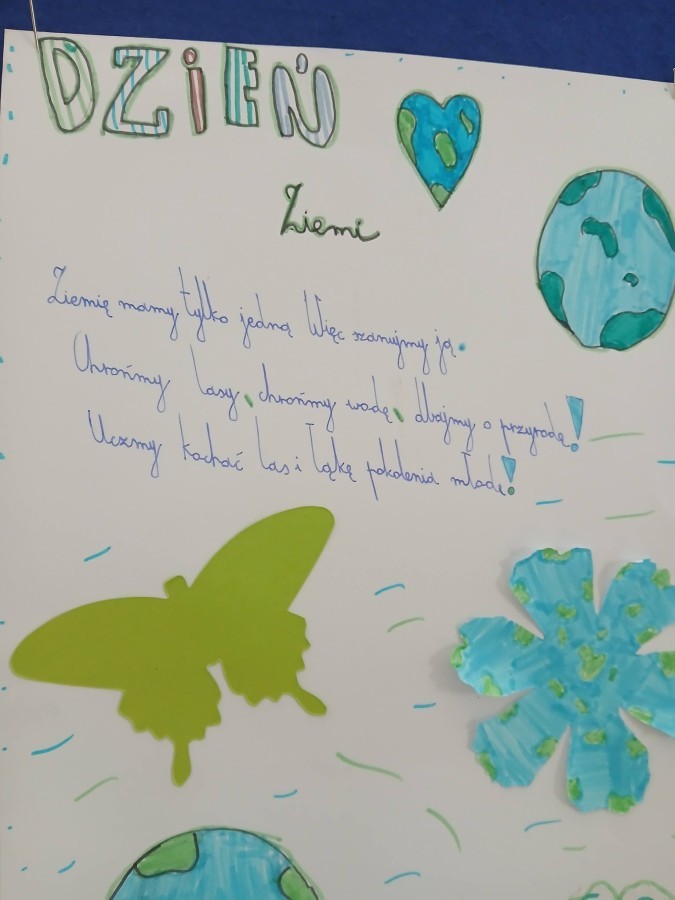 DZiEŃ
Ziemi
Ziemię mamy tylko jedną Więc szanujmy ją.
Chrońmy lasy, chrońmy wodę, dbajmy o przyrodę!
Uczmy kochać las i łąkę pokolenia młode!